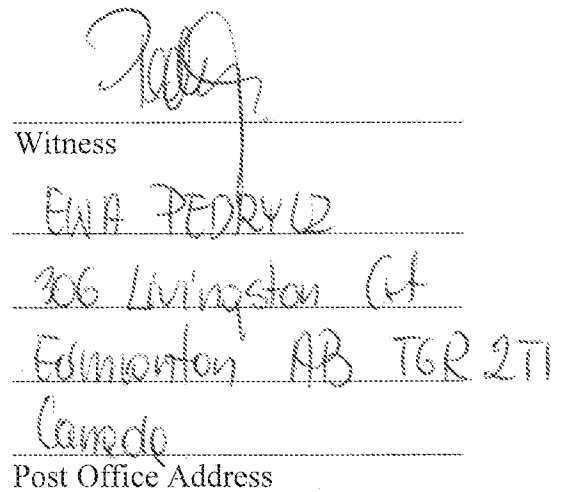 Witness
EWA PEDRYCZ
306 Livingston Crt
Edmonton AB T6R 2T1
Canada
Post Office Address